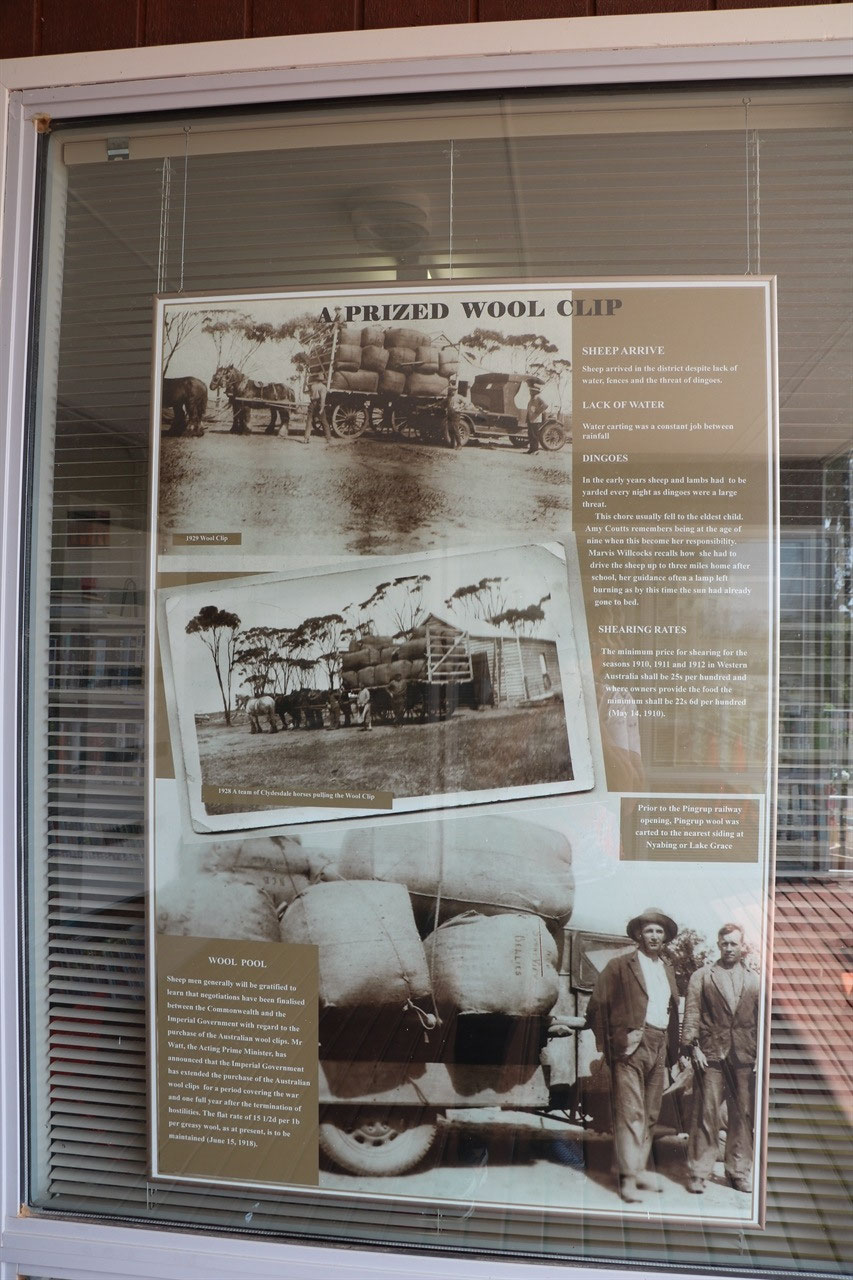 A PRIZED WOOL CLIP
1929 Wool Clip
SHEEP ARRIVE
Sheep arrived in the district despite lack of
water, fences and the threat of dingoes.
LACK OF WATER
Water carting was a constant job between
rainfall
DINGOES
In the early years sheep and lambs had to be
yarded every night as dingoes were a large
threat.
This chore usually fell to the eldest child.
Amy Coutts remembers being at the age of
nine when this become her responsibility.
Marvis Willcocks recalls how she had to
drive the sheep up to three miles home after
school, her guidance often a lamp left
burning as by this time the sun had already
gone to bed.
SHEARING RATES
The minimum price for shearing for the
seasons 1910, 1911 and 1912 in Western
Australia shall be 25s per hundred and
where owners provide the food the
minimum shall be 22s 6d per hundred
(May 14, 1910).
1928 A team of Clydesdale horses pulling the Wool Clip
Prior to the Pingrup railway
opening, Pingrup wool was
carted to the nearest siding at
Nyabing or Lake Grace
WOOL POOL
Sheep men generally will be gratified to
learn that negotiations have been finalised
between the Commonwealth and the
Imperial Government with regard to the
purchase of the Australian wool clips. Mr
Watt, the Acting Prime Minister, has
announced that the Imperial Government
has extended the purchase of the Australian
wool clips for a period covering the war
and one full year after the termination of
hostilities. The flat rate of 15 1/2d per lb
per greasy wool, as at present, is to be
maintained (June 15, 1918).